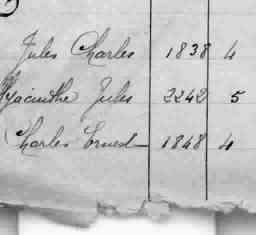 Jules Charles 1838 4
Hyacinthe Jules 2242 5
Charles Ernest 1848 4